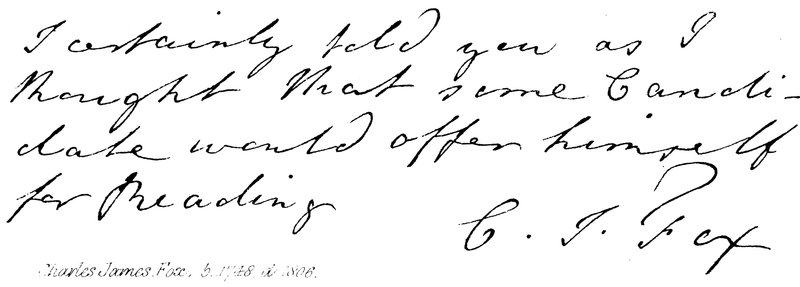 I certainly told you as I
thought that some Candi-
date would offer himself
for Reading
C. J. Fox
Charles James Fox. b. 1748. d. 1806.